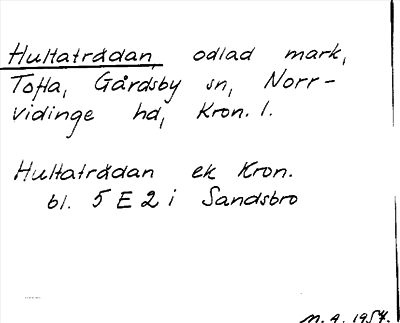 Hultaträdan, odlad mark,
Tofta, Gårdsby sn, Norr-
vidinge hd, Kron. l.
Hultaträdan ek Kron.
bl. 5 E 2 i Sandsbro
M. A. 1957.